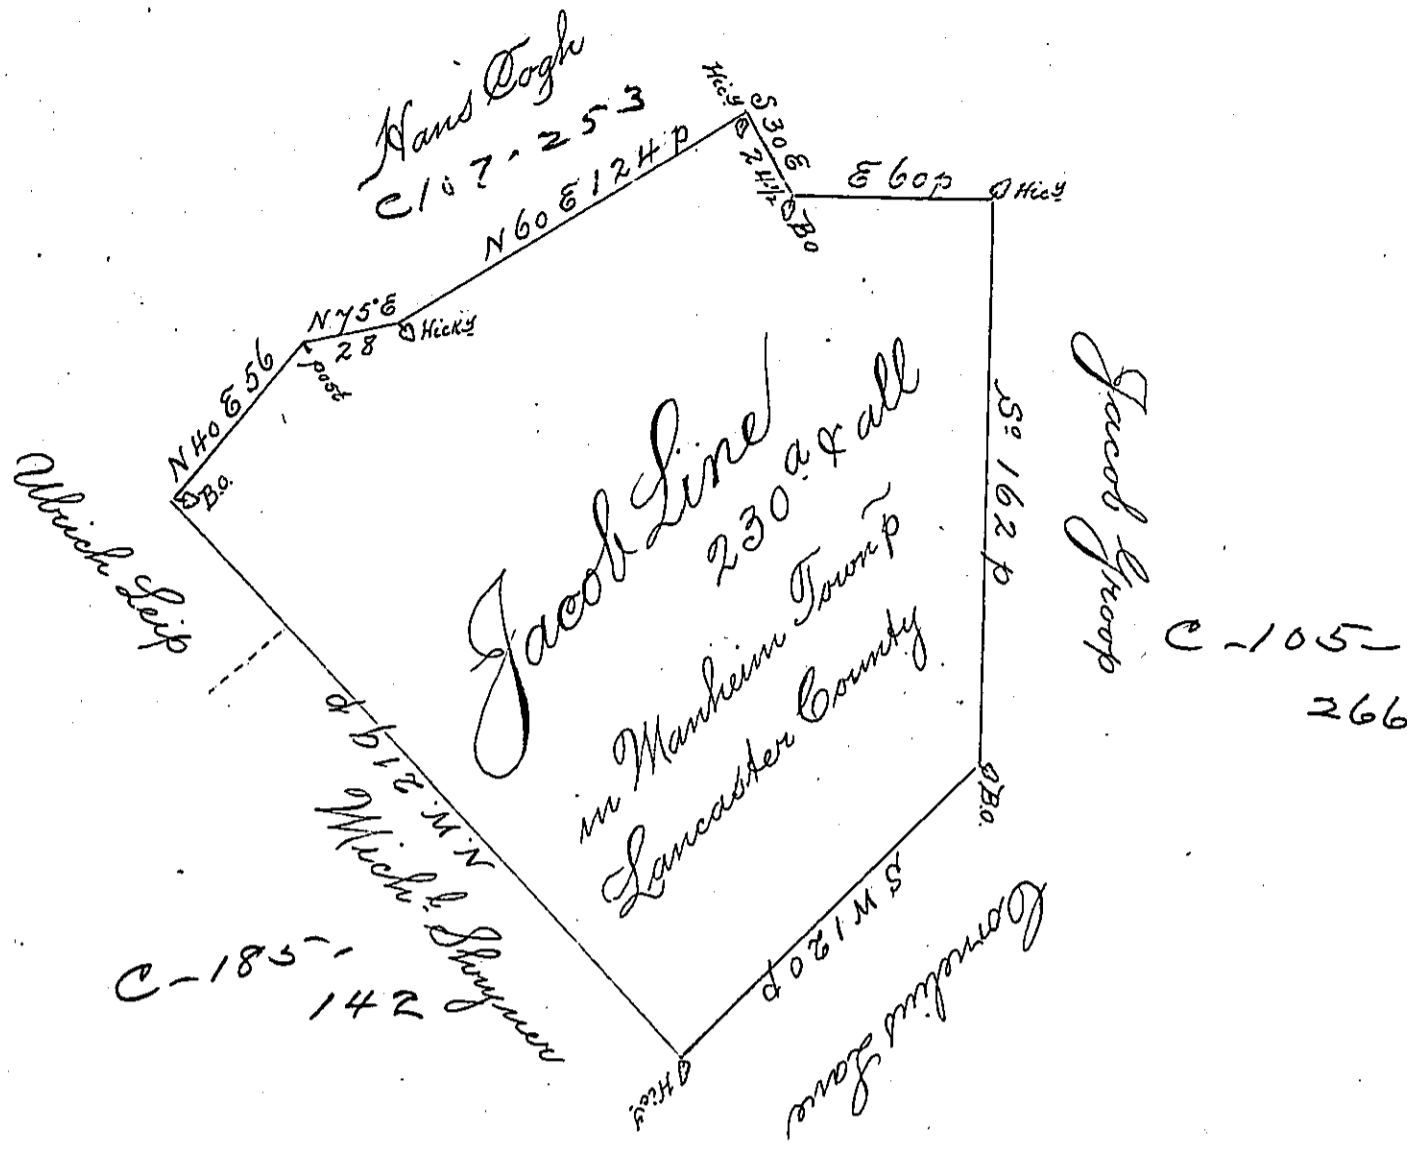 Hans Cogh
C107-253
Hicy
S30E
24½
Bo
E 60p
Hicy
N60E124p
N.75°E
28
Hicky
post
N40E56
B.o.
Ulrich Leip
Jacob Line
230 a & all
in Manheim Townp
Lancaster County
So 162 p
Jacob Groop
C-105-
266
B.o.
SW120p
Cornelius Lane
Hicy
N.W. 219 p
Michl
C-185-
142